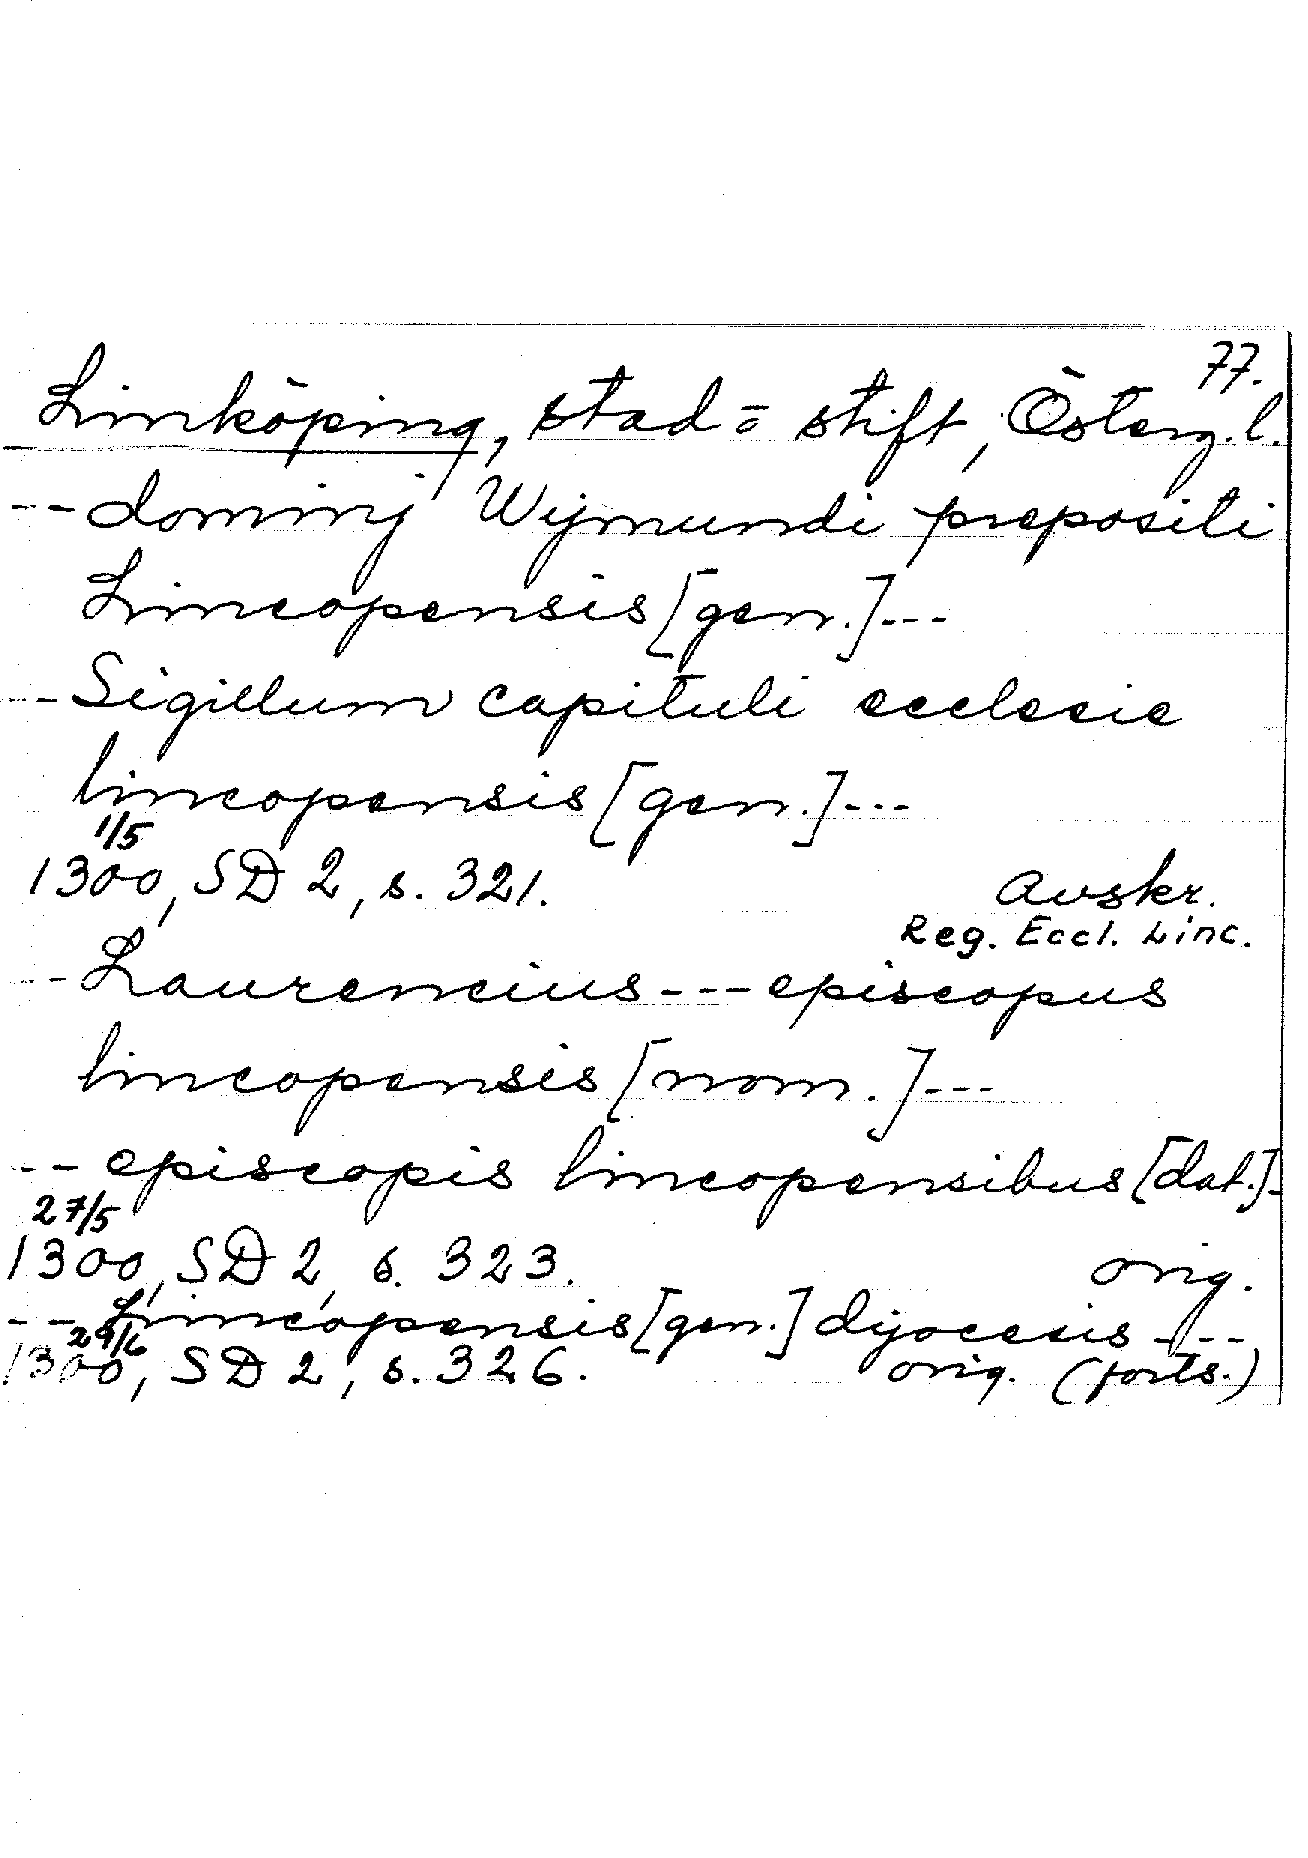 77.
Linköping, stad o stift, Österg.l.
-- dominj Wijmundi prepositi
Lincopensis [gen.]---
-- Sigillum capituli ecclesie
lincopensis [gen.]---
1/5
1300, SD 2, s. 321. Avskr.
Reg. Eccl. Linc.
-- Laurencius --- episcopus
lincopensis [nom.]---
-- episcopis lincopensibus [dat.]-
27/5
1300, SD 2, s. 323. orig.
-- Lincopensis [gen.] dyocesis ---
29/6
1300, SD 2, s. 326. orig. (forts.)